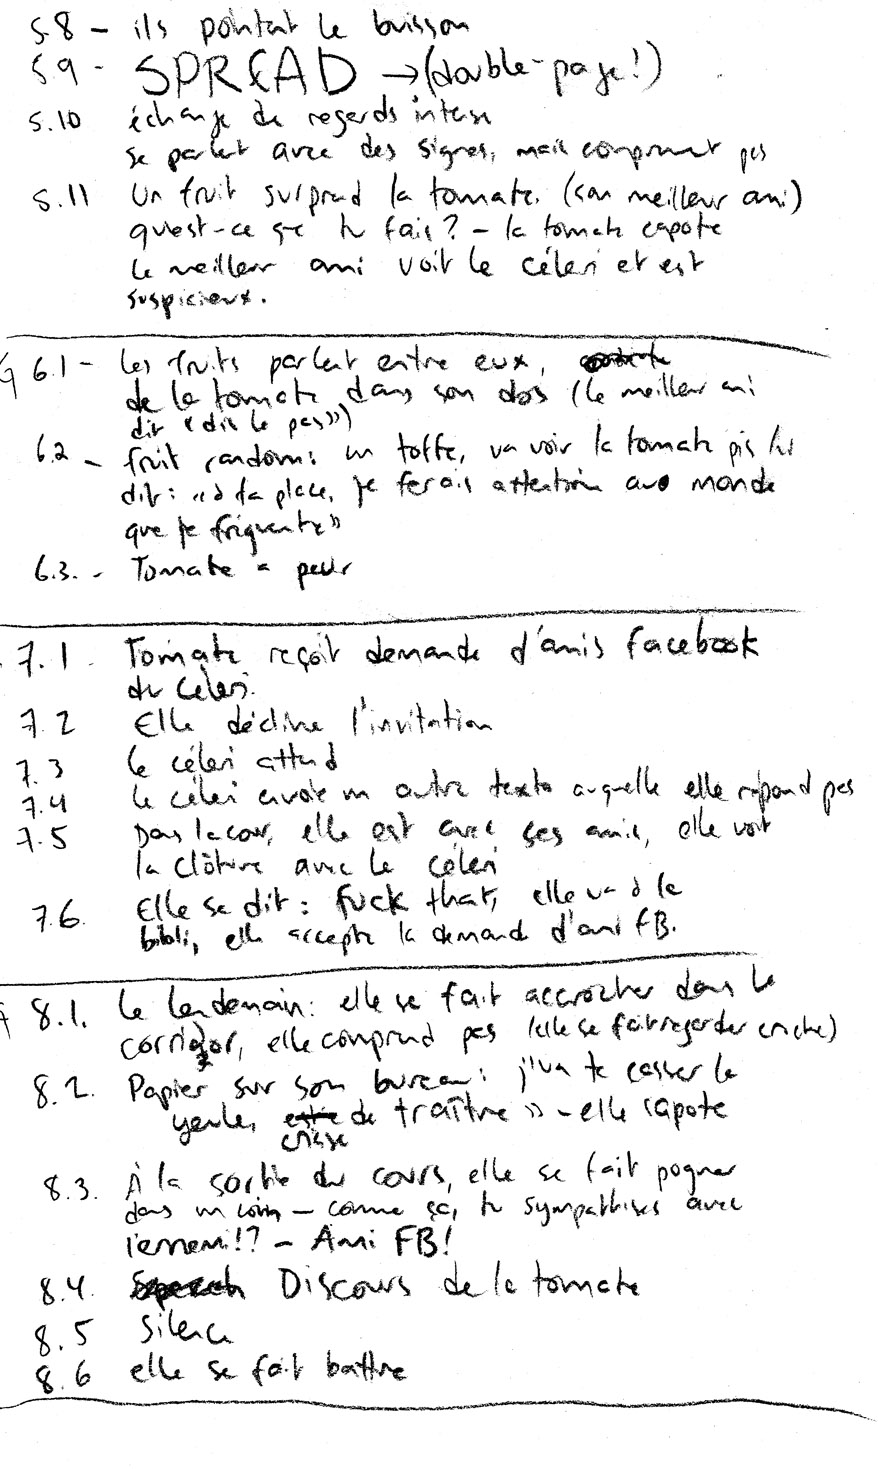 5.8 - ils pointent le buisson
5.9 - SPREAD → (double-page!)
5.10 échange de regards intense
se parlent avec des signes, mais comprennent pas
5.11 Un fruit surprend la tomate. (son meilleur ami)
qu'est-ce que tu fais? - la tomate capote
Le meilleur ami voit le céleri et est
suspicieux.
6.1 - Les fruits parlent entre eux,
de la tomate dans son dos (le meilleur ami
dit « dis le pas »)
6.2 - fruit random: un toffe, va voir la tomate pis lui
dit: « à ta place, je ferais attention au monde
que je fréquente »
6.3. - Tomate a peur
7.1 Tomate reçoit demande d'amis facebook
du céleri.
7.2 Elle décline l'invitation
7.3 Le céleri attend
7.4 Le céleri envoie un autre texto auquelle elle répond pas
7.5 Dans la cour, elle est avec ses amis, elle voit
la clôture avec le céleri
7.6. Elle se dit: fuck that, elle va à la
bibli, elle accepte la demand d'ami FB.
8.1. Le lendemain: elle se fait accrocher dans le
corridor, elle comprend pas (elle se fait regarder croche)
8.2. Papier sur son bureau: j'va te casser la
yeule, crisse de traître » - elle capote
8.3. À la sortie du cours, elle se fait pogner
dans un coin - comme ça, tu sympathises avec
l'ennemi!? - Ami FB!
8.4. Discours de la tomate
8.5 Silence
8.6 elle se fait battre